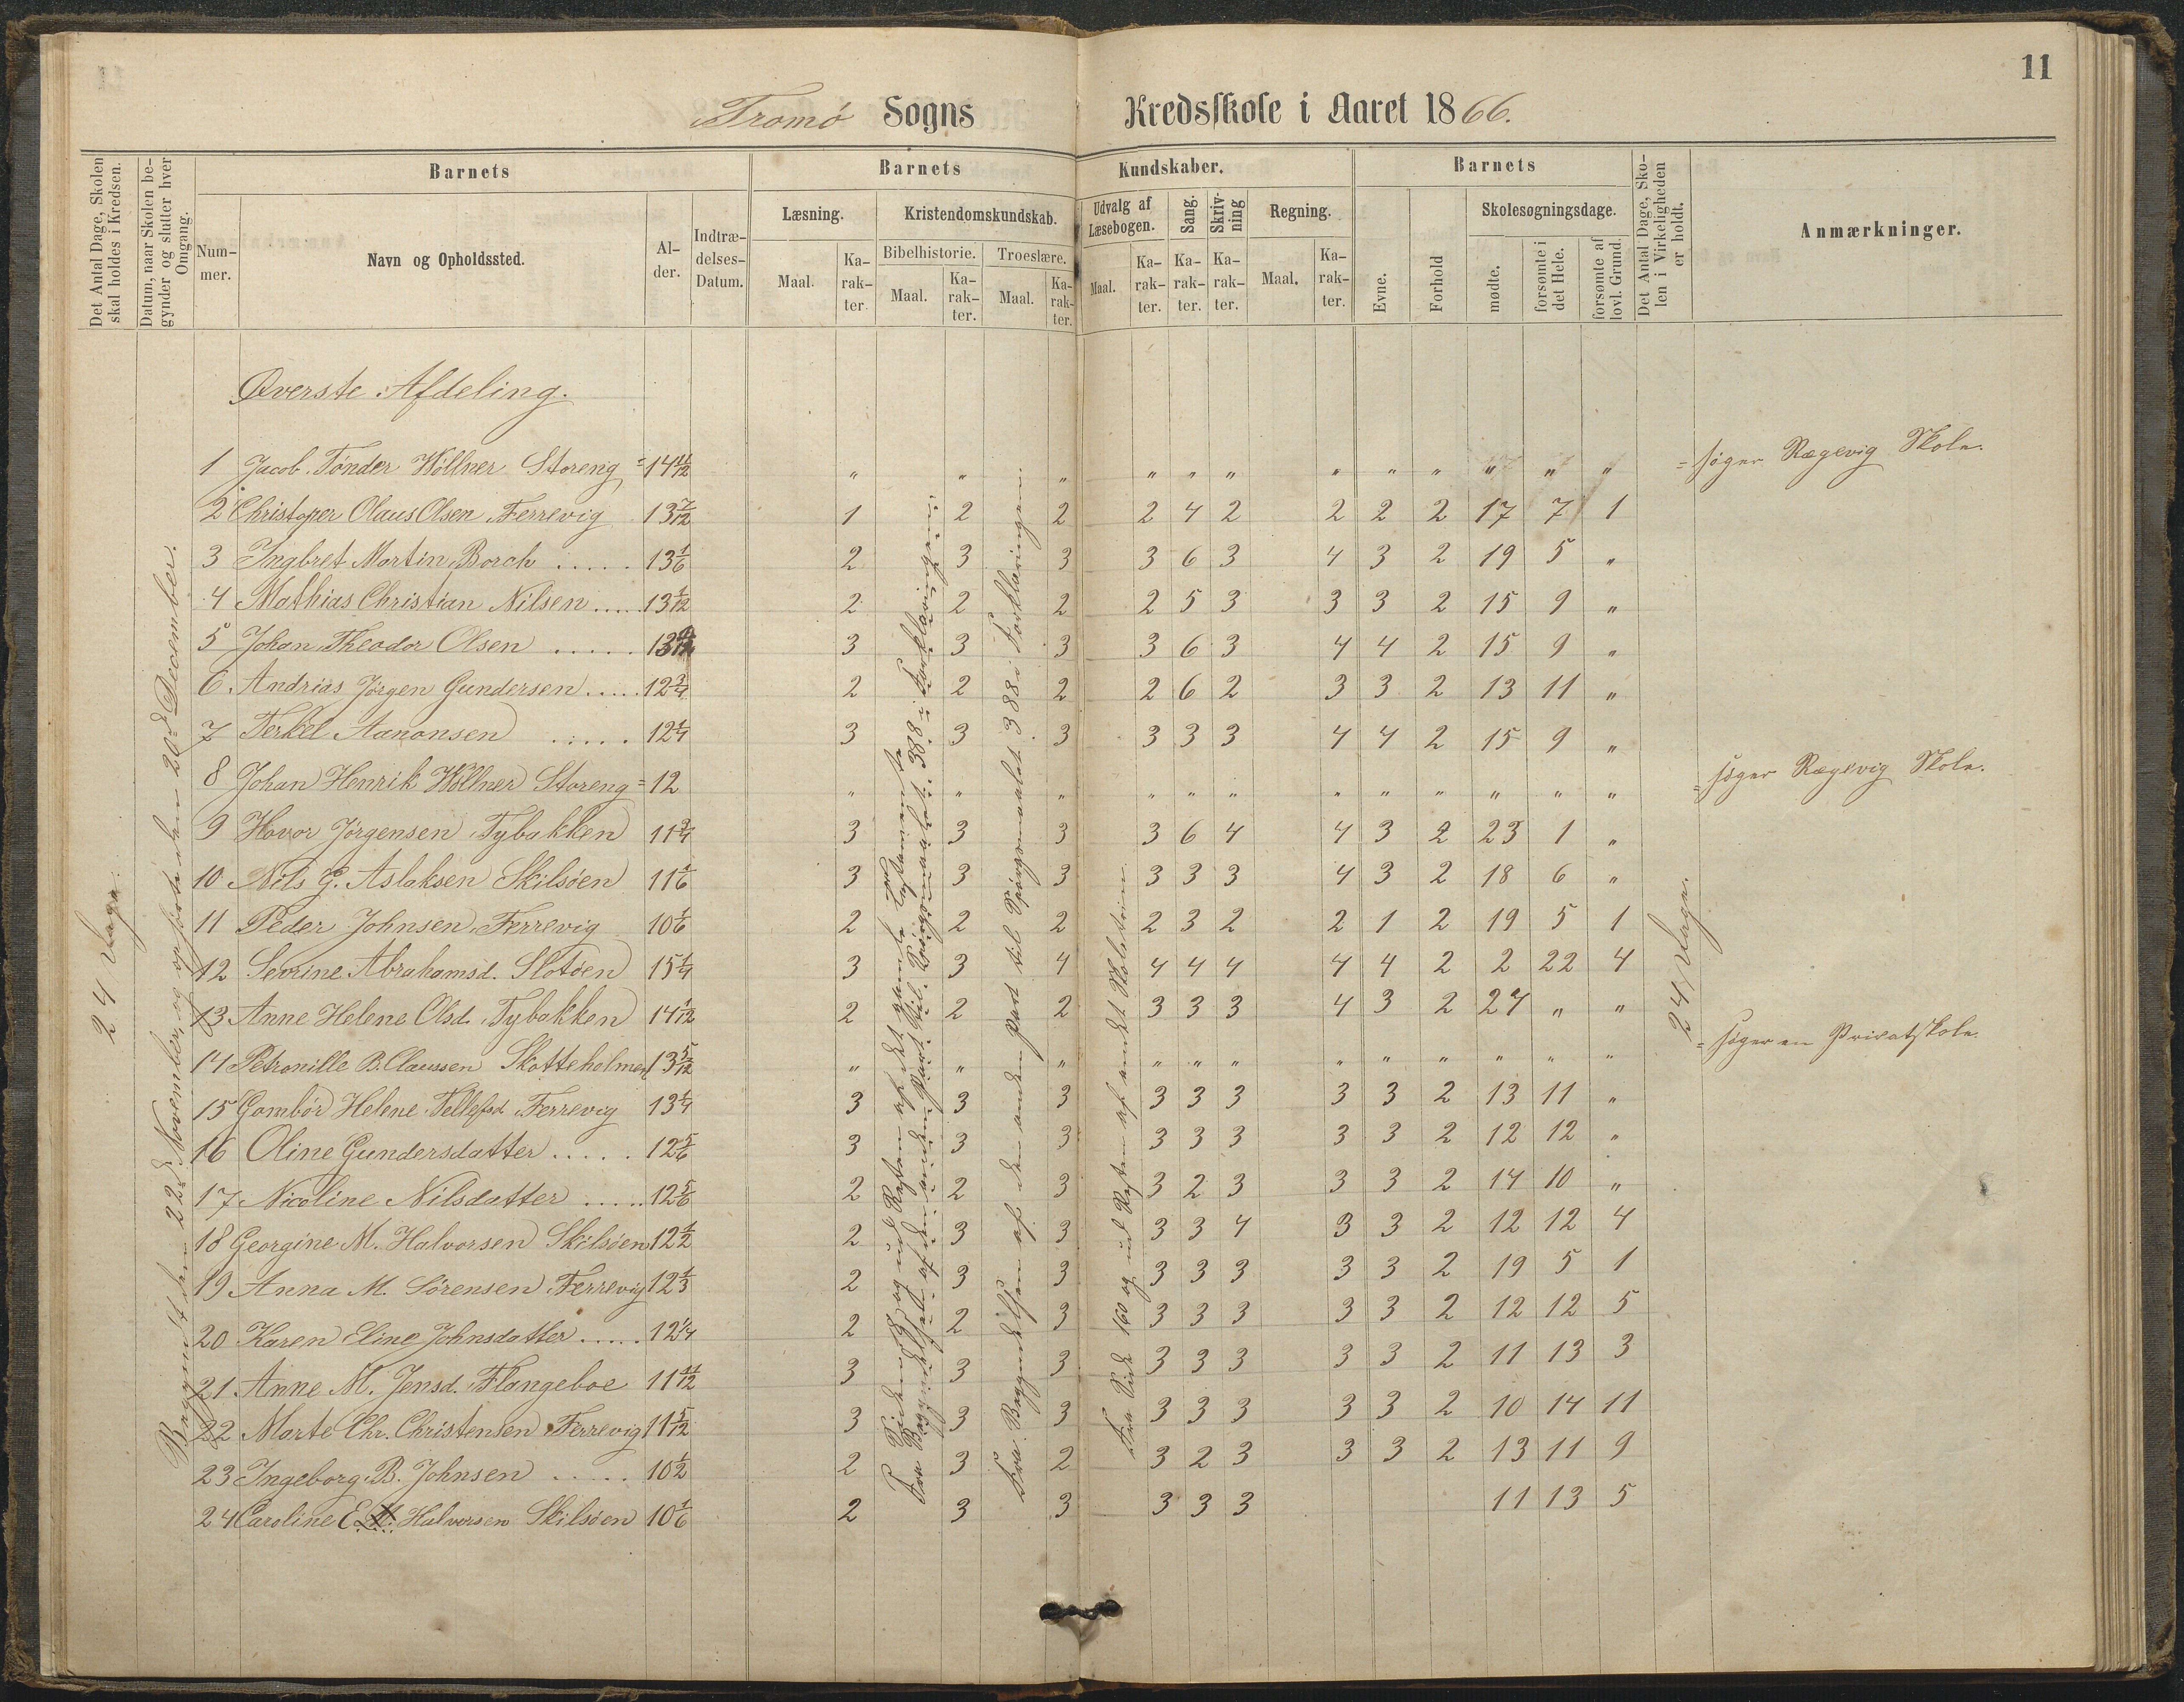 11
Tromö Sogns Kredsskole i Aaret 1866.
Det Antal Dage, Skolen skal holdes i Kredsen.
Datum, naar Skolen begynder og slutter hver Omgang.
Barnets
Num-mer.
Navn og Opholdssted.
Al-der.
Indtræ-delses-Datum.
Barnets Kundskaber.
Læsning.
Maal.
Ka-rak-ter.
Kristendomskundskab.
Bibelhistorie.
Maal.
Ka-rak-ter.
Troeslære.
Maal.
Ka-rak-ter.
Udvalg af Læsebogen.
Maal.
Ka-rak-ter.
Sang.
Ka-rak-ter.
Skriv-ning
Ka-rak-ter.
Regning.
Maal.
Ka-rak-ter.
Barnets
Evne.
Forhold
Skolesøgningsdage.
mødte.
forsømte i det Hele.
forsømte af lovl. Grund.
Det Antal Dage, Sko-len i Virkeligheden er holdt.
Anmærkninger.
24 Dage.
Begyndt den 22d November, og opsluttet den 20d December.
Øverste Afdeling.
1 Jacob Tönder Wöllner Storeng = 14 11/12 " " " " " " " " " " " " = søger Rægevig Skole.
2 Christoper Olaus Olsen Færrevig 13 7/12 1 2 2 2 4 2 2 2 2 17 7 1
3 Ingbret Martin Borch ..... 13 1/6 2 3 3 3 6 3 4 3 2 19 5 "
4 Mathias Christian Nilsen ..... 13 1/12 2 2 2 2 5 3 3 3 2 15 9 "
5 Johan Theodor Olsen ..... 3 3 3 3 6 3 4 4 2 15 9 "
6 Andrias Jörgen Gundersen ..... 12 3/4 2 2 2 2 6 2 3 3 2 13 11 "
7 Terkel Aanonsen ..... 12 1/4 3 3 3 3 3 3 4 4 2 15 9 "
8 Johan Henrik Wöllner Storeng = 12 " " " " " " " " " " " " = søger Rægevig Skole.
9 Hovor Jörgensen Tybakken 11 3/4 3 3 3 3 6 4 4 3 2 23 1 "
10 Nils G. Aslaksen Skilsöen 11 1/6 3 3 3 3 3 3 4 3 2 18 6 "
11 Peder Johnsen Færrevig 10 1/6 2 2 2 2 3 2 2 1 2 19 5 1
12 Sevrine Abrahamsd. Slotöen 15 1/4 3 3 4 4 4 4 4 4 2 2 22 4
13 Anne Helene Olsd. Tybakken 14 1/12 2 2 2 3 3 3 4 3 2 24 " "
14 Petronille B. Claussen Skotteholmen 13 5/12 " " " " " " " " " " " " = søger en Privatskole.
15 Gombör Helene Tellefsd. Færrevig 13 1/4 3 3 3 3 3 3 3 3 2 13 11 "
16 Oline Gundersdatter ..... 12 5/6 3 3 3 3 3 3 3 3 2 12 12 "
17 Nicoline Nilsdatter ..... 12 5/6 2 2 3 3 2 3 3 3 2 14 10 "
18 Georgine M. Halvorsen Skilsöen 12 1/2 2 3 3 3 3 4 3 3 2 12 12 4
19 Anna M. Sörensen Færrevig 12 1/3 2 3 3 3 3 3 3 3 2 19 5 1
20 Karen Eline Johnsdatter ..... 12 1/4 2 2 3 3 3 3 3 3 2 12 12 5
21 Anne M. Jensd. Flangeboe 11 11/12 3 3 3 3 3 3 3 3 2 11 13 3
22 Marte Chr. Christensen Færrevig 11 5/12 3 3 3 3 3 3 3 3 2 10 14 11
23 Ingeborg B. Johnsen ..... 10 1/2 2 3 2 3 2 3 3 3 2 13 11 9
24 Caroline E. M. Halvorsen Skilsöen 10 1/6 2 3 3 3 3 3 11 13 5
og ud Resten af det gamle Testamente
Fra Begyndelsen af den anden Part til Spörgsmaalet 388 i Forklaringen
Fra Begyndelsen af den anden Part til Spörgsmaalet 388 i Forklaringen
Fra Side 160 og ud Resten af andet Skoletrin
24 Dage.